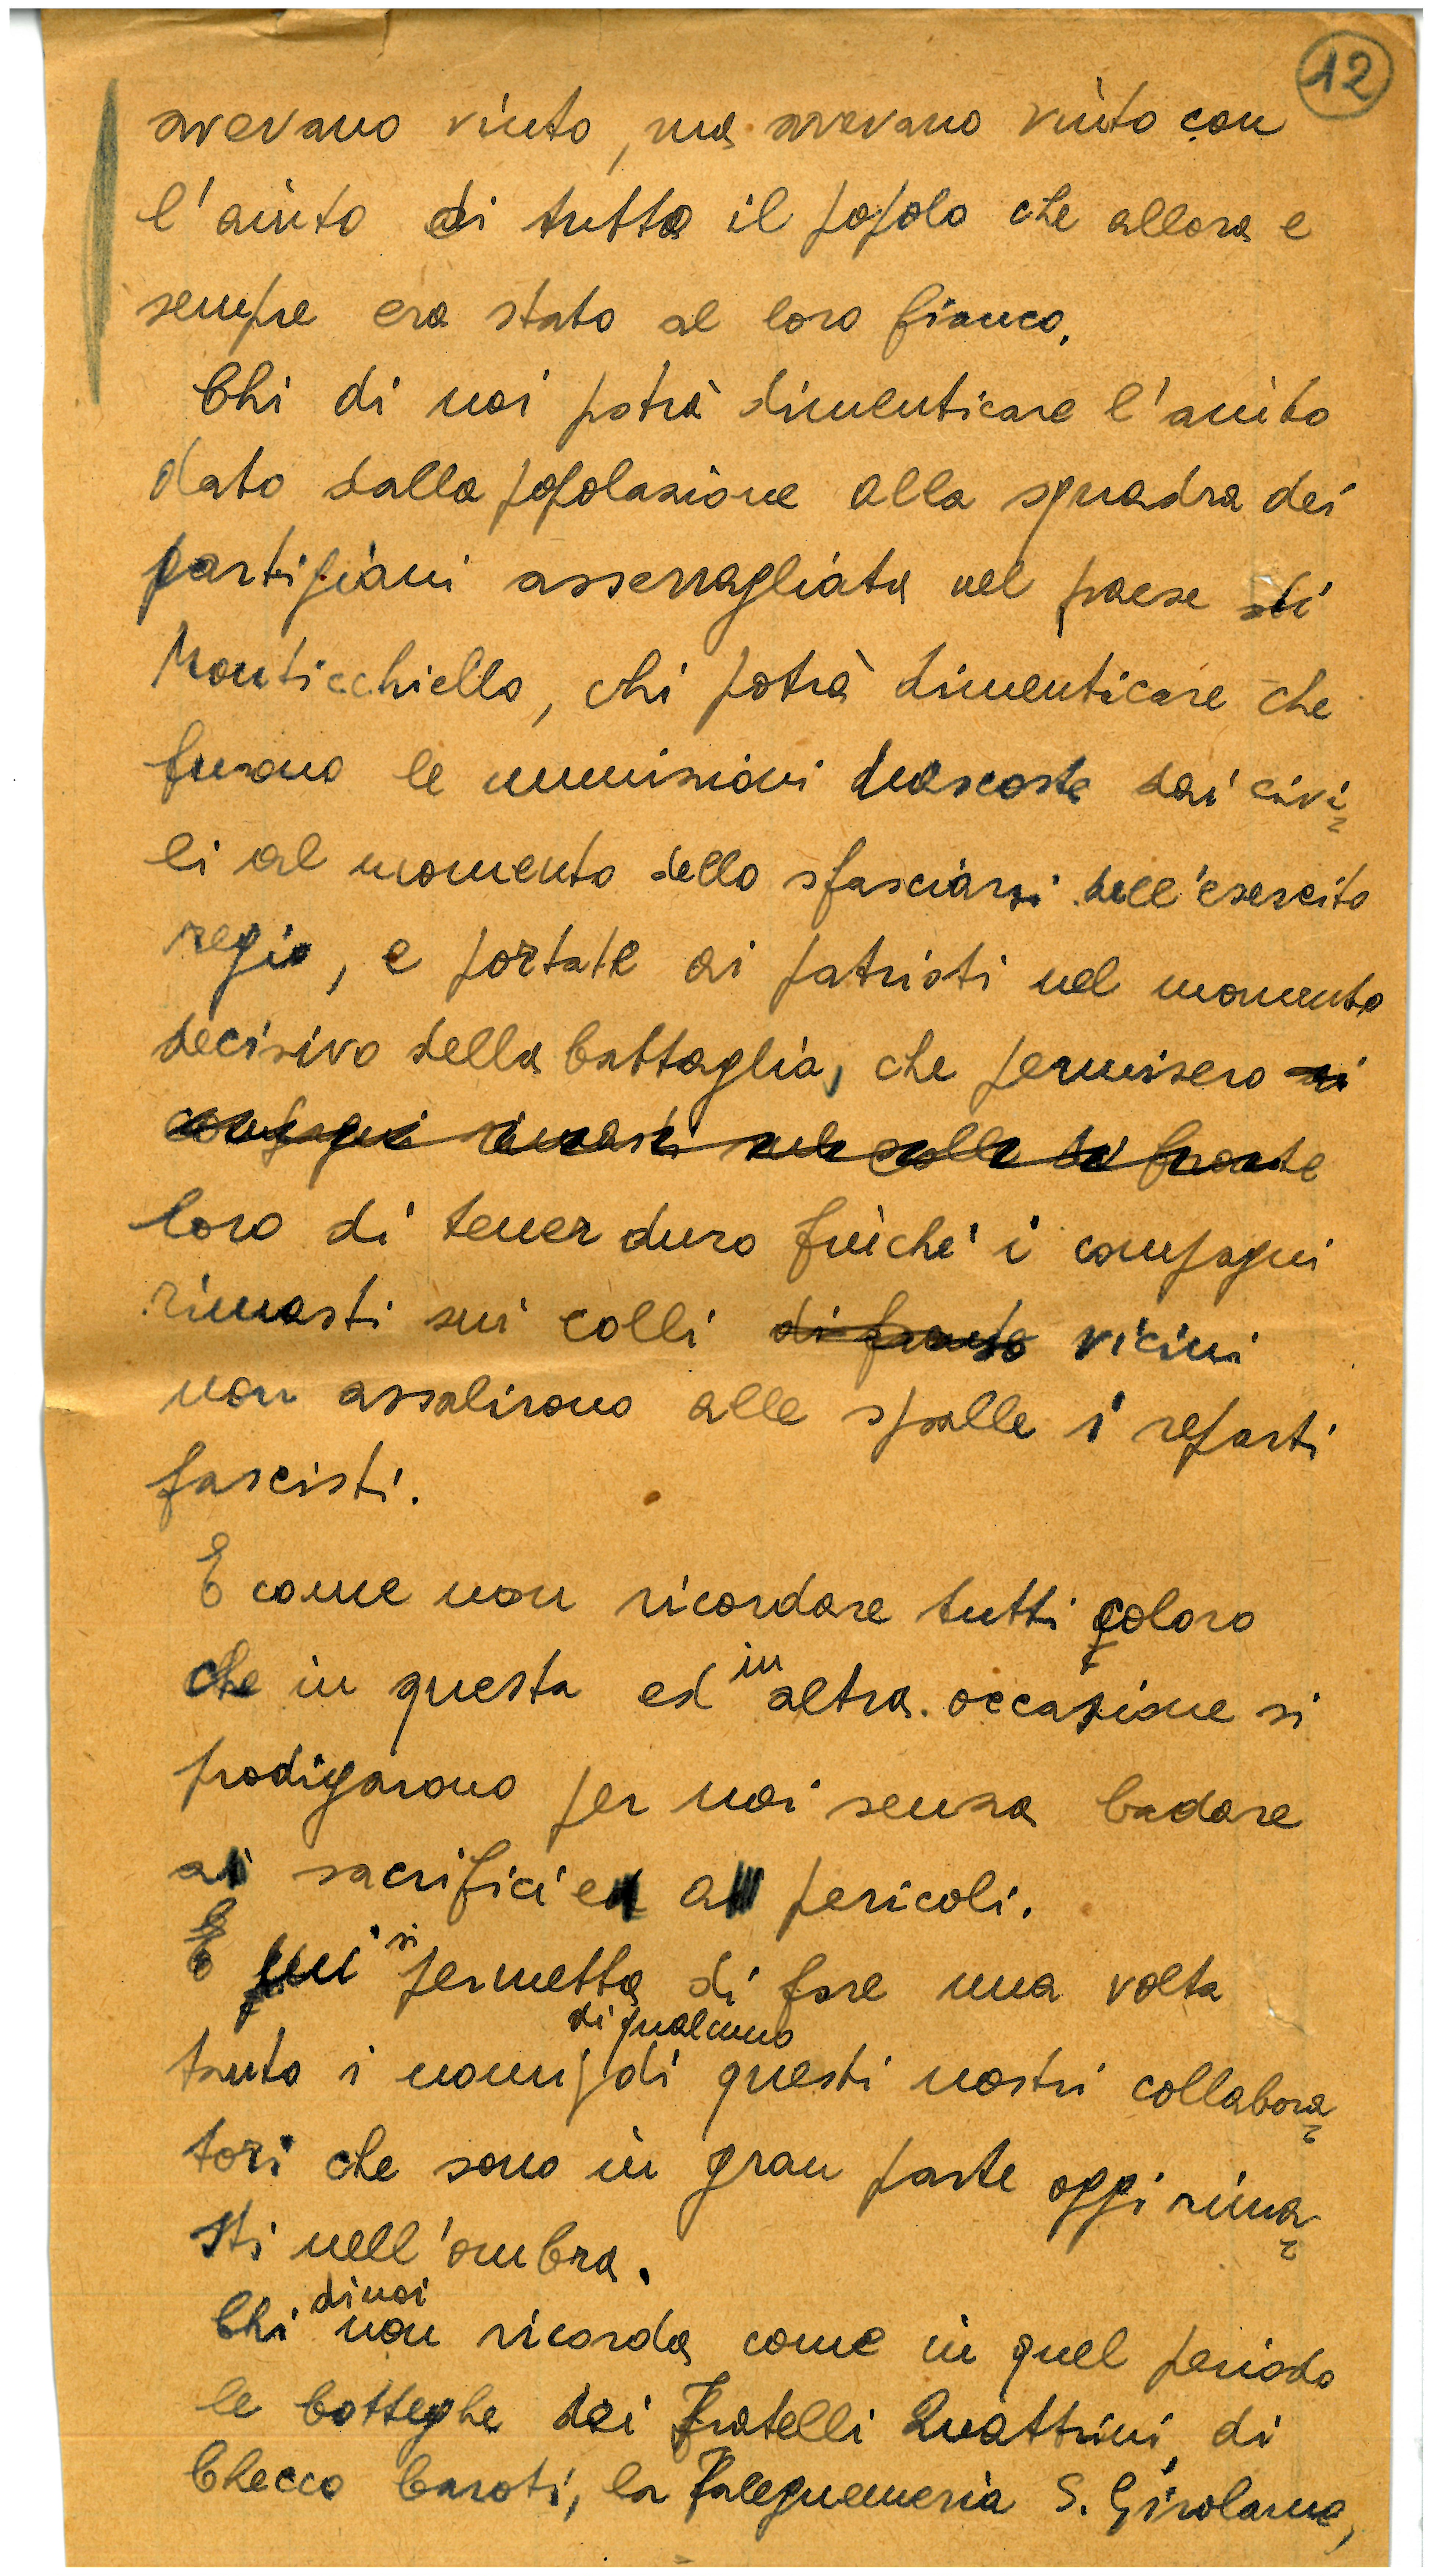 12
avevano vinto, ma avevano vinto con
l'aiuto di tutto il popolo che allora e
sempre era stato al loro fianco.
Chi di noi potrà dimenticare l'aiuto
dato dalla popolazione alla squadra dei
partigiani asserragliata nel paese di
Monticchiello, chi potrà dimenticare che
furono le munizioni nascoste dai civi=
li al momento dello sfasciarsi dell'esercito
regio, e portate ai patrioti nel momento
decisivo della battaglia, che permisero ai
compagni rimasti sul colle di fronte
loro di tener duro finché i compagni
rimasti sui colli di fronte vicini
non assalirono alle spalle i reparti
fascisti.
E come non ricordare tutti coloro
che in questa ed in altra occasione si
prodigarono per noi senza badare
ai sacrifici e a pericoli.
E si permetta di fare una volta
di qualcuno
tanto i nomi di questi nostri collabora=
tori che sono in gran parte oggi rima=
sti nell'ombra.
Chi di noi non ricorda come in quel periodo
le botteghe dei Fratelli Quattrini, di
Checco Caroti, la Falegnameria S. Girolamo,